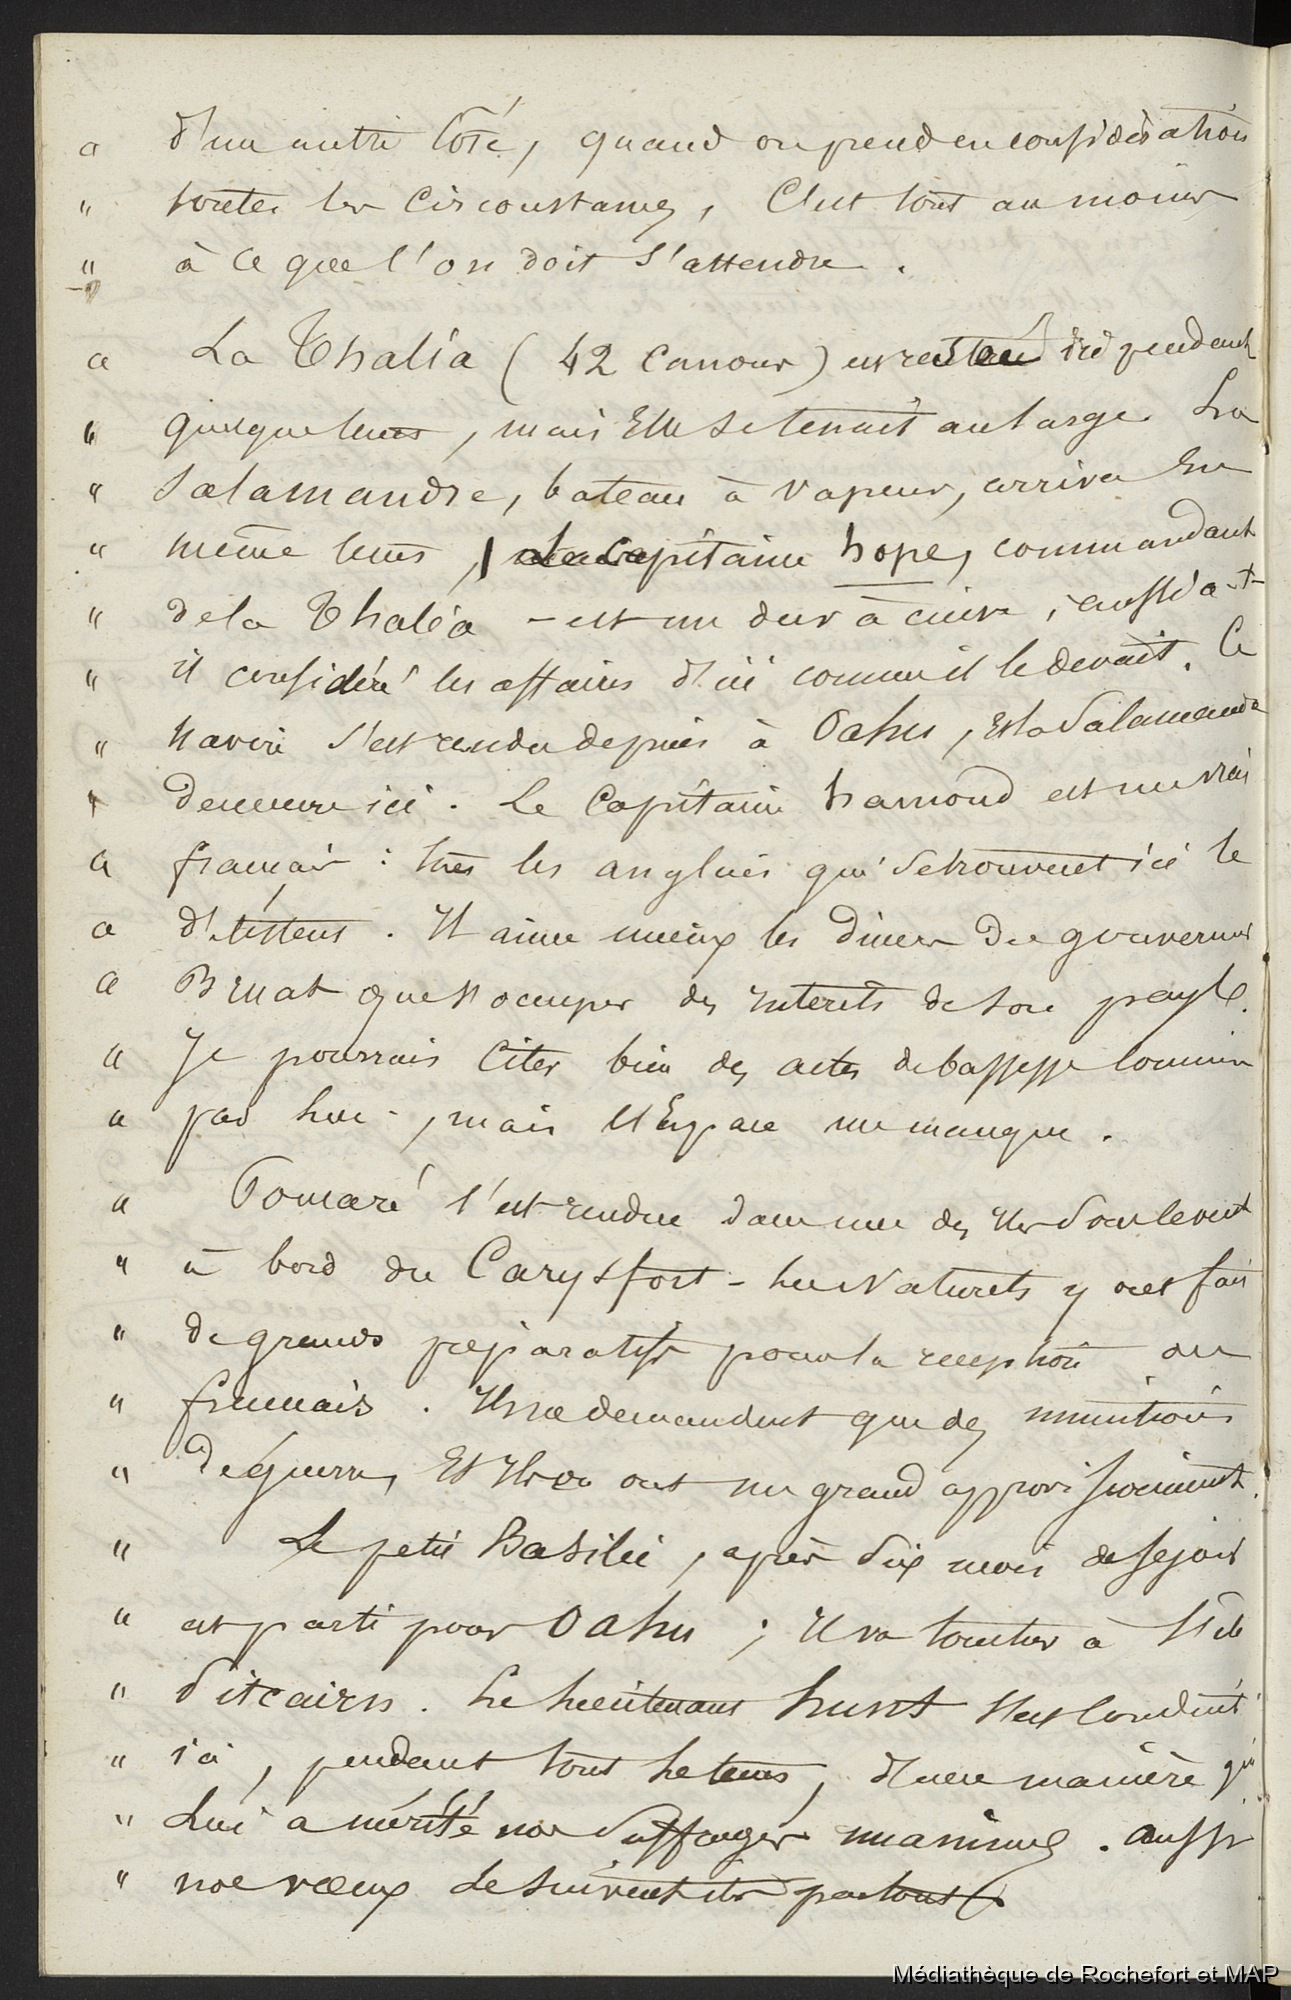 " d'un autre Côté, quand on prend en considération
" toutes les Circonstances, C'est tout au moins
" à ce que l'on doit s'attendre.
" La Thalia (42 Canons) est restée ici pendant
" quelque tems, mais Elle se tenait au large. La
" Salamandre, bateau à vapeur, arriva En
" même tems, Le Capitaine hope, commandant
" de la Thalia - est un dur à cuire, aussi a-t-
" il considéré les affaires d'ici comme il le devait. Ce
" navire s'est rendu depuis à Oahu, Et la Salamandre
" demeure ici. Le Capitaine hamond est un vrai
" français : tous les anglais qui se trouvent ici le
" détestent. Il aime mieux les diners du gouverneur
" Bruat que s'occuper des interêts de son pays.
" Je pourrais Citer bien des actes de bassesse Commis
" par lui -, mais l'Espace me manque.
" Pomaré s'est rendue dans une des Iles Sous le vent
" à bord du Carysfort - les Naturels y ont fait
" de grands préparatifs pour la reception du
" français. Ils ne demandent que des munitions
" de guerre, Et Ils en ont un grand approvisionnement.
" Le petit Basilic, après dix mois de séjour
" est parti pour Oahu ; Il va toucher à l'Ile
" Pitcairn. Le lieutenant hunt s'est Conduit
" ici, pendant tout le tems, d'une manière qui
" Lui a mérité nos Suffrages unanimes. aussi
" nos vœux le suivent ils partout.
Médiathèque de Rochefort et MAP